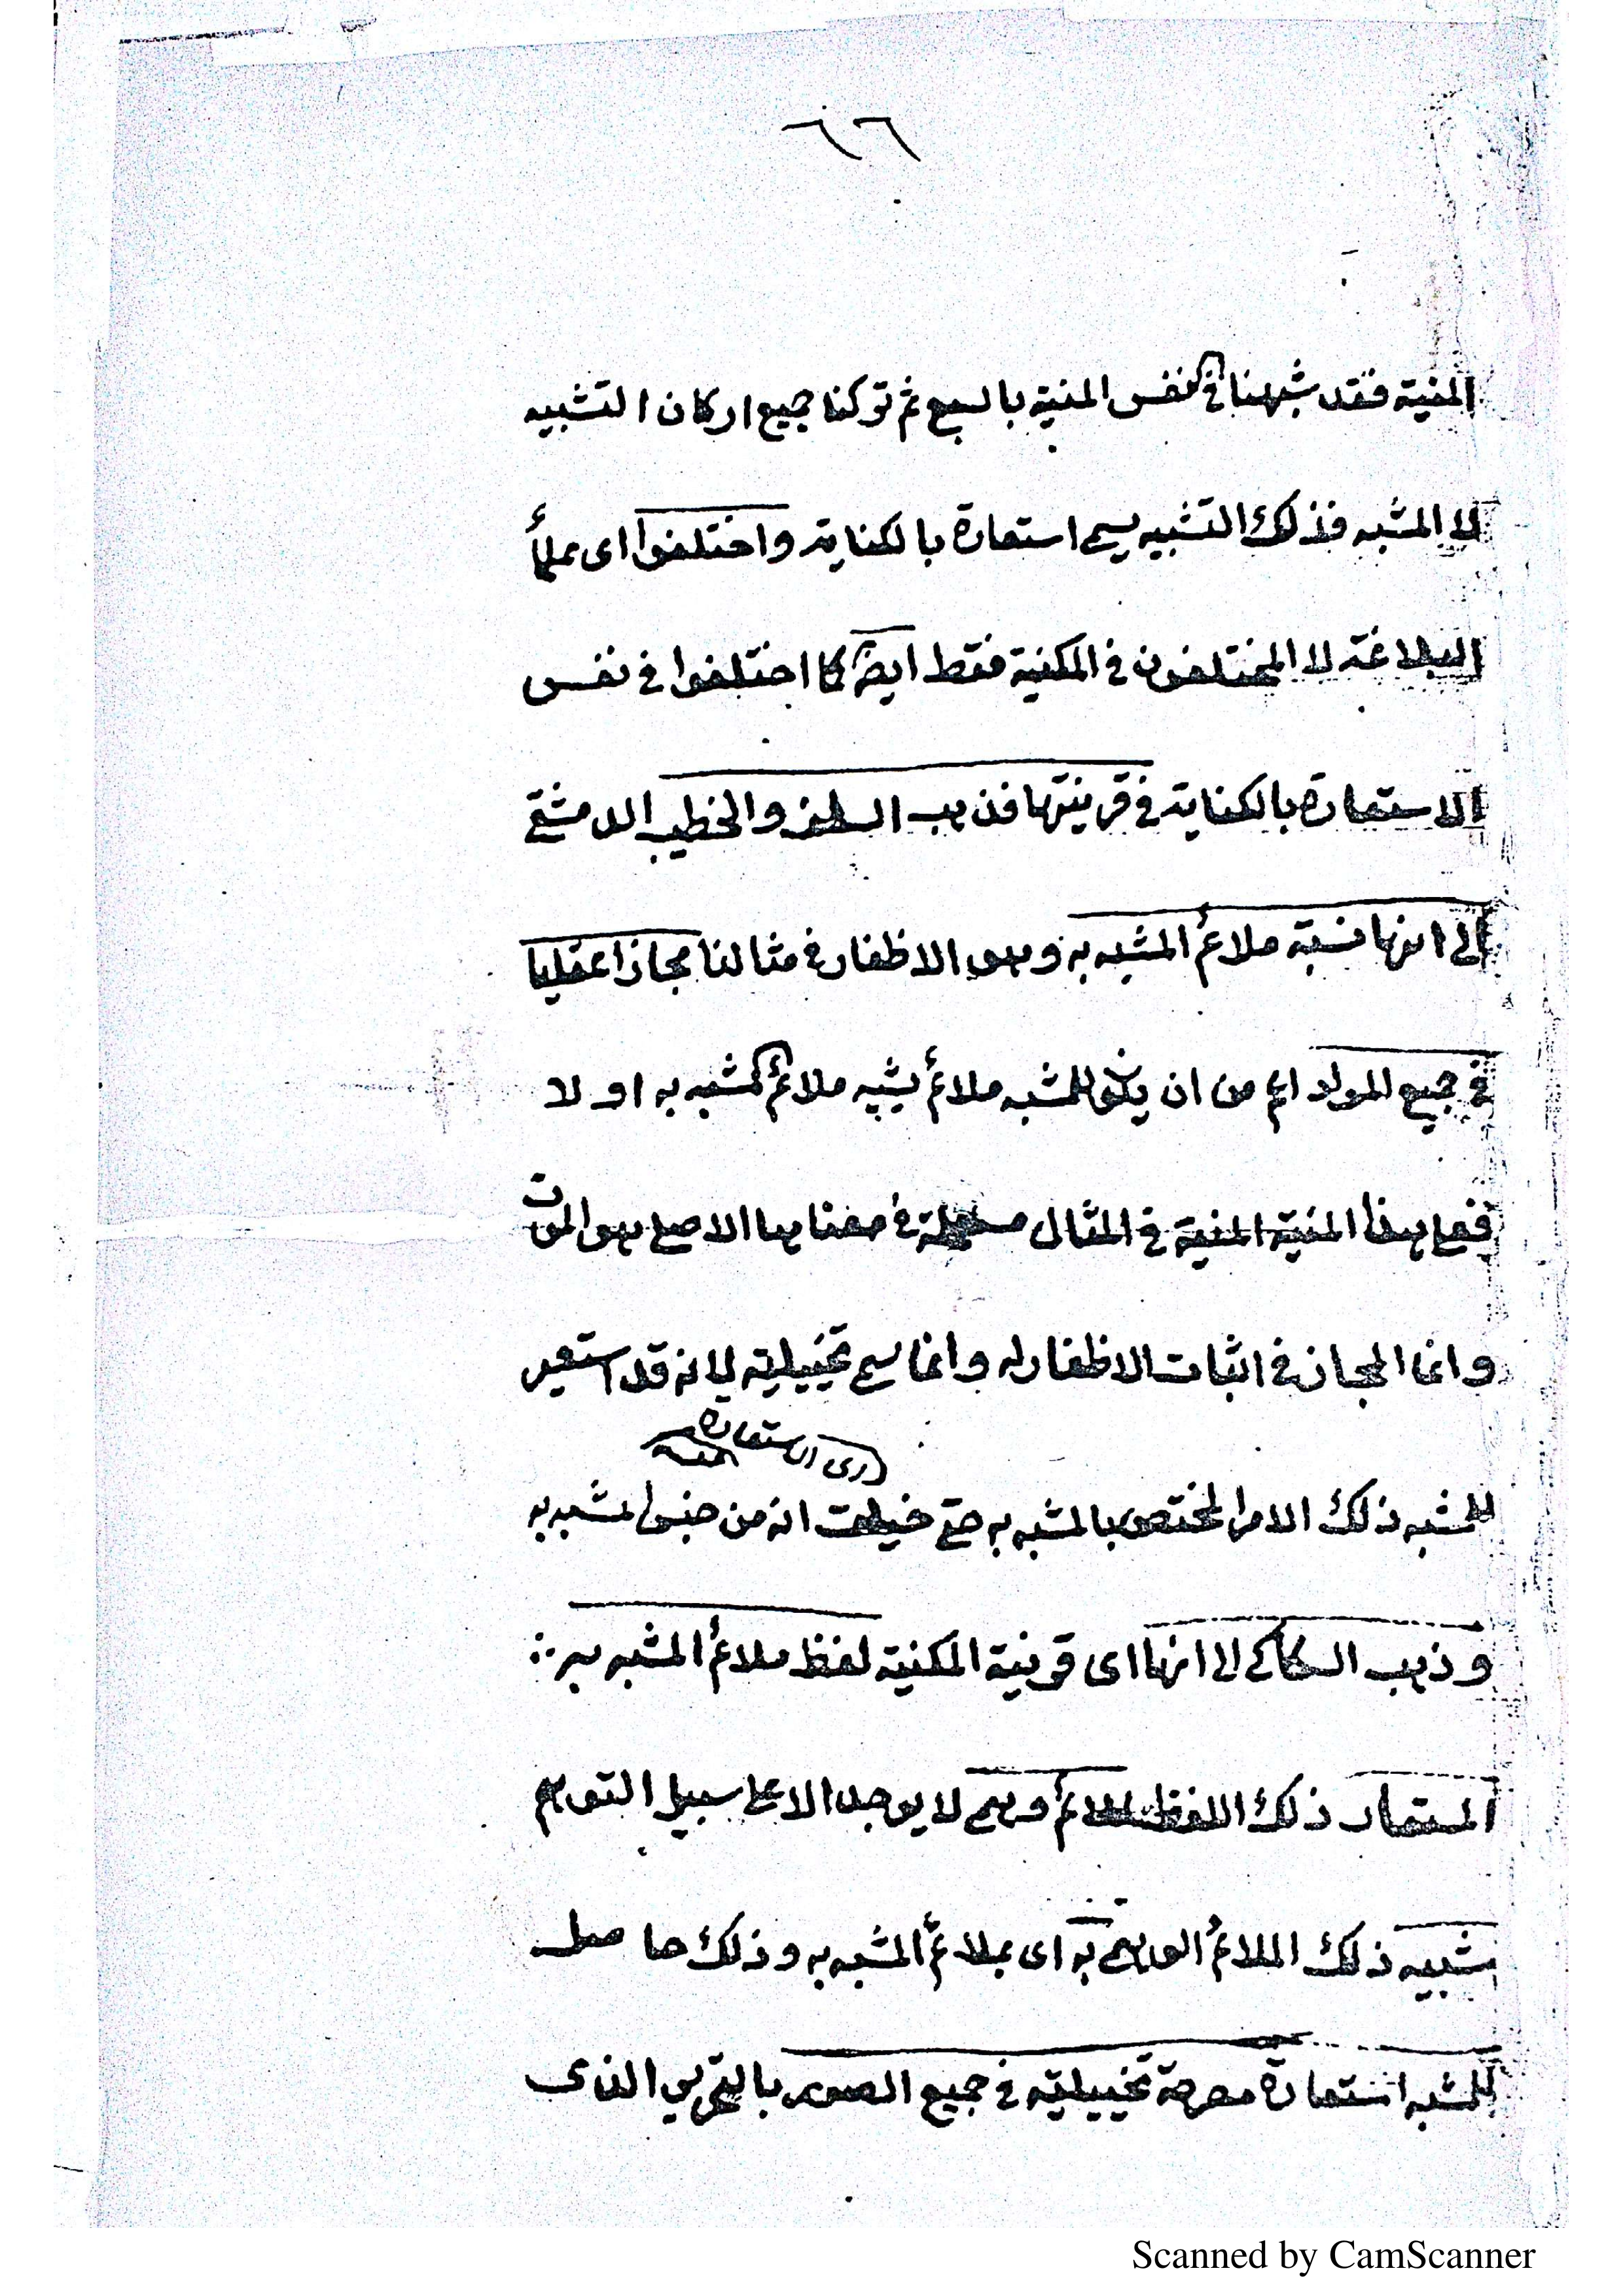 ٦٦
المنية فقد شبهنا في النفس المنية بالسبع ثم تركنا جميع اركان التشبيه
الا المشبه فذلك التشبيه يسمى استعارة بالكناية واختلفوا اى علماء
البلاغة لا المختلفون في المكنية فقط ايضا كما اختلفوا في نفس
الاستعارة بالكناية في قرينتها فذهب السلف والخطيب الدمشقي
الى انها نسبة ملائم المشبه به وهو الاظفار في مثالنا مجازا عقليا
في جميع المواد اعم من ان يكون للمشبه ملائم يشبه ملائم المشبه به او لا
فعلى هذا المنية المنية في المثال مستعملة في معناها الاصلي هو الموت
وانما المجاز في اثبات الاظفار له وانما سمي تخييلية لانه قد استعير
اى الاستعارة
للمشبه ذلك الامر المختص بالمشبه به حتى خيلت انه من جنس المشبه به
وذهب السكاكي الى انها اى قرينة المكنية لفظ ملائم المشبه به
المستعار ذلك اللفظ لملائم وهمي لا يوجد الا على سبيل التوهم
شبيه ذلك الملائم الوهمي به اى بملائم المشبه به وذلك حاصل
للمشبه استعارة مصرحة تخييلية في جميع الصور بالتقريب الذى
Scanned by CamScanner